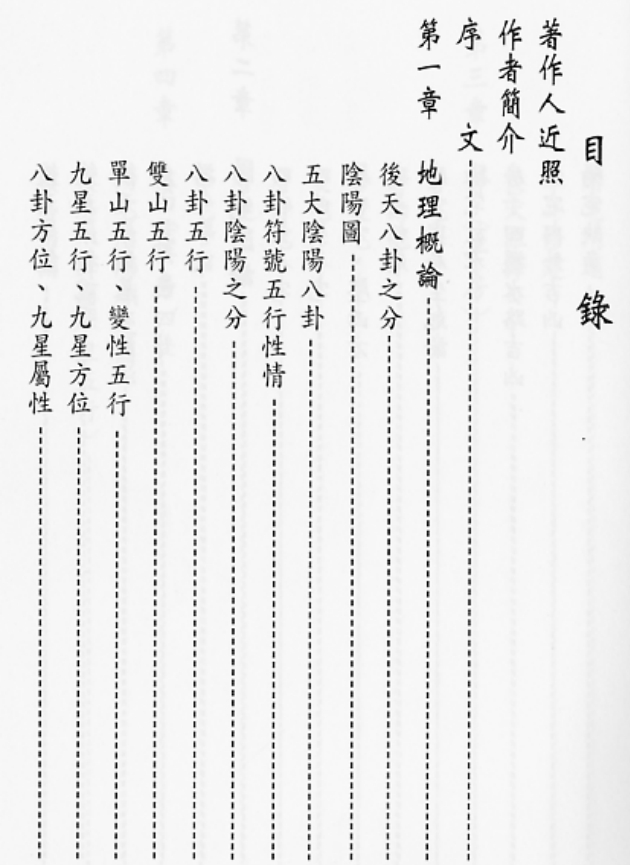 目錄
著作人近照
作者簡介
序文
第一章 地理概論
後天八卦之分
陰陽圖
五大陰陽八卦
八卦符號五行性情
八卦陰陽之分
八卦五行
雙山五行
單山五行、變性五行
九星五行、九星方位
八卦方位、九星屬性